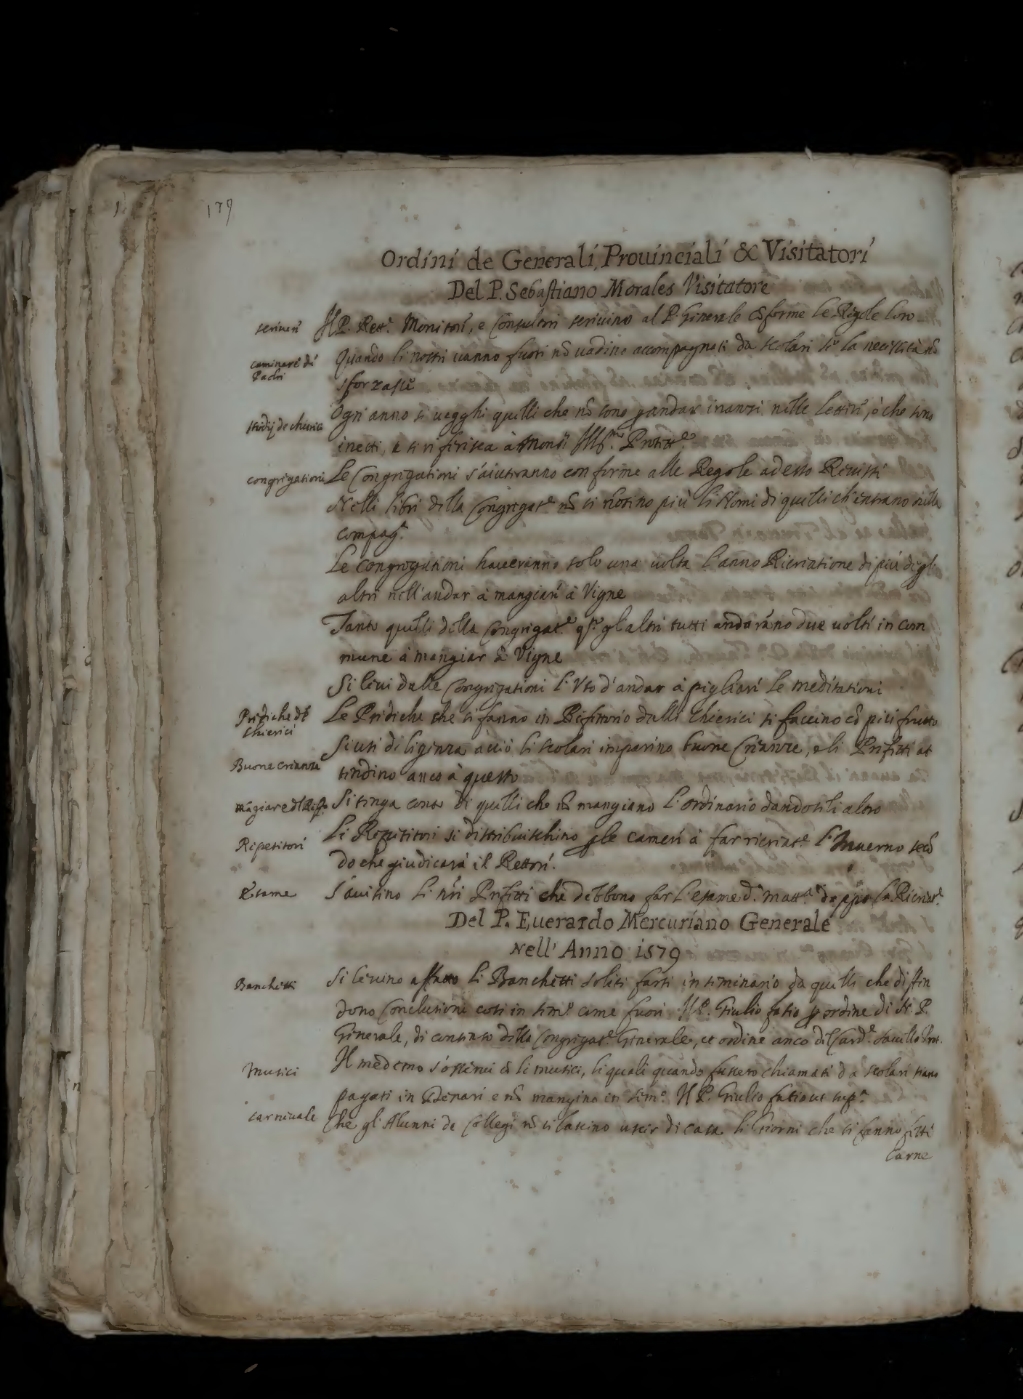 179
Ordini de Generali, Prouinciali & Visitatori
Del P. Sebastiano Morales Visitatore
scriuere Il P. Rett.e Monitore, e Consultori scriuino al P. Generale cõforme le Regole loro
caminare di Quando li nostri uanno fuori nõ uadino accompagnati da scolari se la necessità nõ
Padri sforzasse
Ogni anno si uegghi quelli che nõ sono p andar inanzi nelle lettere, o che sono
studij de inetti, e si riferisca à Mons.r Ill.mo
congregationi Le Congregationi s'aiuteranno conforme alle Regole adesso
Nelli libri della Congregat.e nõ si notino più li Nomi di quelli ch'entrano nella
compag.a
Le Congregationi haueranno solo una uolta l'anno Ricreatione di più degl
altri nell'andar à mangiare à Vigne
Tanto quelli della Congregat.e q.to gl altri tutti andarãno due uolte in com
mune à mangiar à Vigne
Si leui dalle Congregationi l'Vso d'andar à pigliare le meditationi
Prediche de Le Prediche che si fanno in Refettorio dalli Chierici si faccino cõ più frutto
Chierici
Si usi diligenza, acciò li scolari imparino buone Crianze, e li Prefetti at
Buone crianze tendino anco à questo
mãgiare Si tenga conto di quelli che nõ mangiano l'ordinario dandoseli altro
Ripetitori Li Repetitori si distribuischino p le camere à far ricreat.e l'Inuerno secõ
do che giudicarà il Rettore.
Esame S'auisino li nri Prefetti che debbono far l'esame d. matt.a doppo la Ricreat.e
Del P. Euerardo Mercuriano Generale
Nell'Anno 1579
Banchetti Si leuino affatto li Banchetti soliti farsi in seminario da quelli che diffen
dono Conclusioni così in sem.o come fuori. Il P. Giulio fatio p ordine di N. P.
Generale, di consenso della Congregat.e Generale, et ordine anco del Card.e
Musici Il medemo s'osserui cõ li musici, li quali quando fussero chiamati da scolari siano
pagati in Denari e nõ mangino in sem.o Il P. Giulio fatio ut sup.a
Carneuale Che gli Alunni de Collegi nõ si lascino uscir di casa li Giorni che si fanno feste
Carne